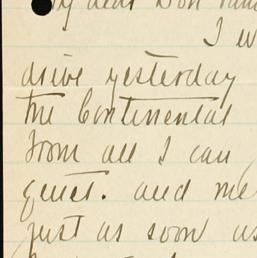 My dear Don
I
drive yesterday
the Continental
from all I can
quiet. and me
just as soon as